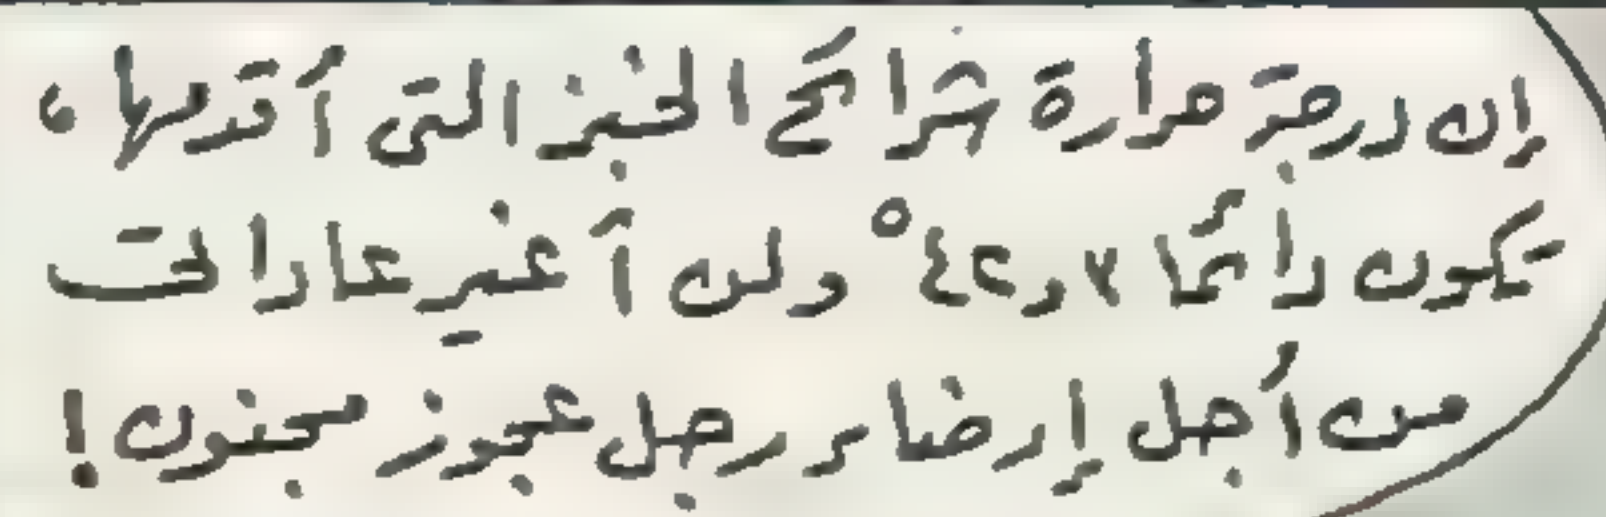 إن درجة حرارة شرائح الخبز التى أقدمها ،
تكون دائمًا ٣ر٤٢° ولن أغير عاداتى
من أجل إرضاء رجل عجوز مجنون !